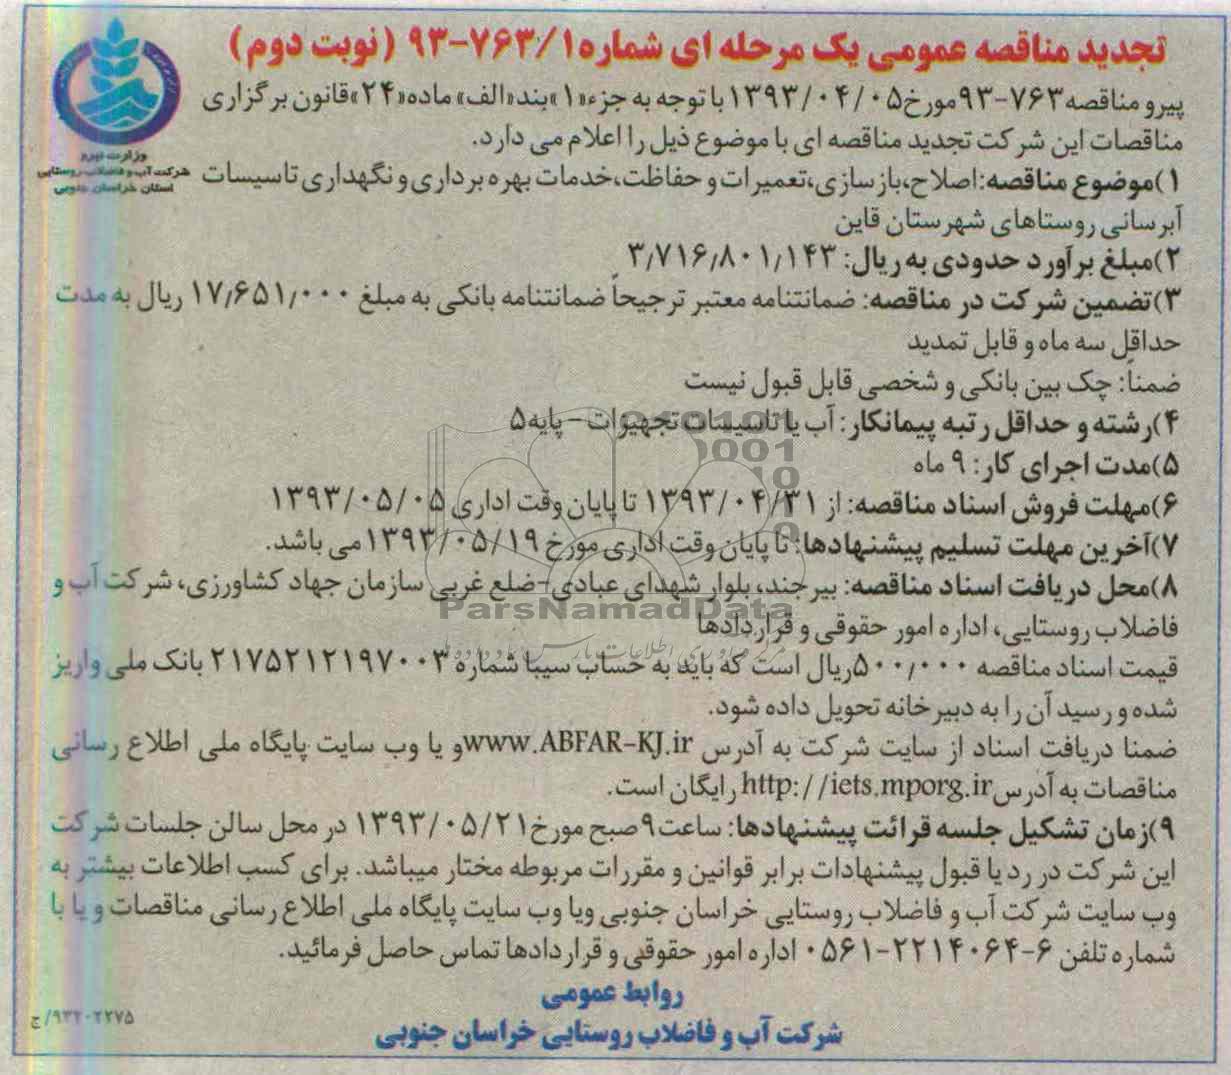 تجدید مناقصه عمومی یک مرحله ای شماره ۹۳-۷۶۳/۱ (نوبت دوم)
وزارت نیرو
شرکت آب و فاضلاب روستایی
استان خراسان جنوبی
پیرو مناقصه ۷۶۳-۹۳ مورخ ۱۳۹۳/۰۴/۰۵ با توجه به جزء «۱» بند «الف» ماده «۲۴» قانون برگزاری
مناقصات این شرکت تجدید مناقصه ای با موضوع ذیل را اعلام می دارد.
۱)موضوع مناقصه: اصلاح، بازسازی، تعمیرات و حفاظت، خدمات بهره برداری و نگهداری تاسیسات
آبرسانی روستاهای شهرستان قاین
۲)مبلغ برآورد حدودی به ریال: ۳٫۷۱۶٫۸۰۱٫۱۴۳
۳)تضمین شرکت در مناقصه: ضمانتنامه معتبر ترجیحاً ضمانتنامه بانکی به مبلغ ۱۷٫۶۵۱٫۰۰۰ ریال به مدت
حداقل سه ماه و قابل تمدید
ضمناً: چک بین بانکی و شخصی قابل قبول نیست
۴)رشته و حداقل رتبه پیمانکار: آب یا تاسیسات تجهیزات - پایه ۵
۵)مدت اجرای کار: ۹ ماه
۶)مهلت فروش اسناد مناقصه: از ۱۳۹۳/۰۴/۳۱ تا پایان وقت اداری ۱۳۹۳/۰۵/۰۵
۷)آخرین مهلت تسلیم پیشنهادها: تا پایان وقت اداری مورخ ۱۳۹۳/۰۵/۱۹ می باشد.
۸)محل دریافت اسناد مناقصه: بیرجند، بلوار شهدای عبادی - ضلع غربی سازمان جهاد کشاورزی، شرکت آب و
فاضلاب روستایی، اداره امور حقوقی و قراردادها
ParsNamadData
قیمت اسناد مناقصه ۵۰۰٫۰۰۰ ریال است که باید به حساب سیبا شماره ۲۱۷۵۲۱۲۱۹۷۰۰۳ بانک ملی واریز
شده و رسید آن را به دبیرخانه تحویل داده شود.
ضمنا دریافت اسناد از سایت شرکت به آدرس www.ABFAR-KJ.ir و یا وب سایت پایگاه ملی اطلاع رسانی
مناقصات به آدرس http://iets.mporg.ir رایگان است.
۹)زمان تشکیل جلسه قرائت پیشنهادها: ساعت ۹ صبح مورخ ۱۳۹۳/۰۵/۲۱ در محل سالن جلسات شرکت
این شرکت در رد یا قبول پیشنهادات برابر قوانین و مقررات مربوطه مختار میباشد. برای کسب اطلاعات بیشتر به
وب سایت شرکت آب و فاضلاب روستایی خراسان جنوبی ویا وب سایت پایگاه ملی اطلاع رسانی مناقصات و یا با
شماره تلفن ۶-۲۲۱۴۰۶۴-۰۵۶۱ اداره امور حقوقی و قراردادها تماس حاصل فرمائید.
روابط عمومی
شرکت آب و فاضلاب روستایی خراسان جنوبی
۹۳۲۰۲۲۷۵/ج